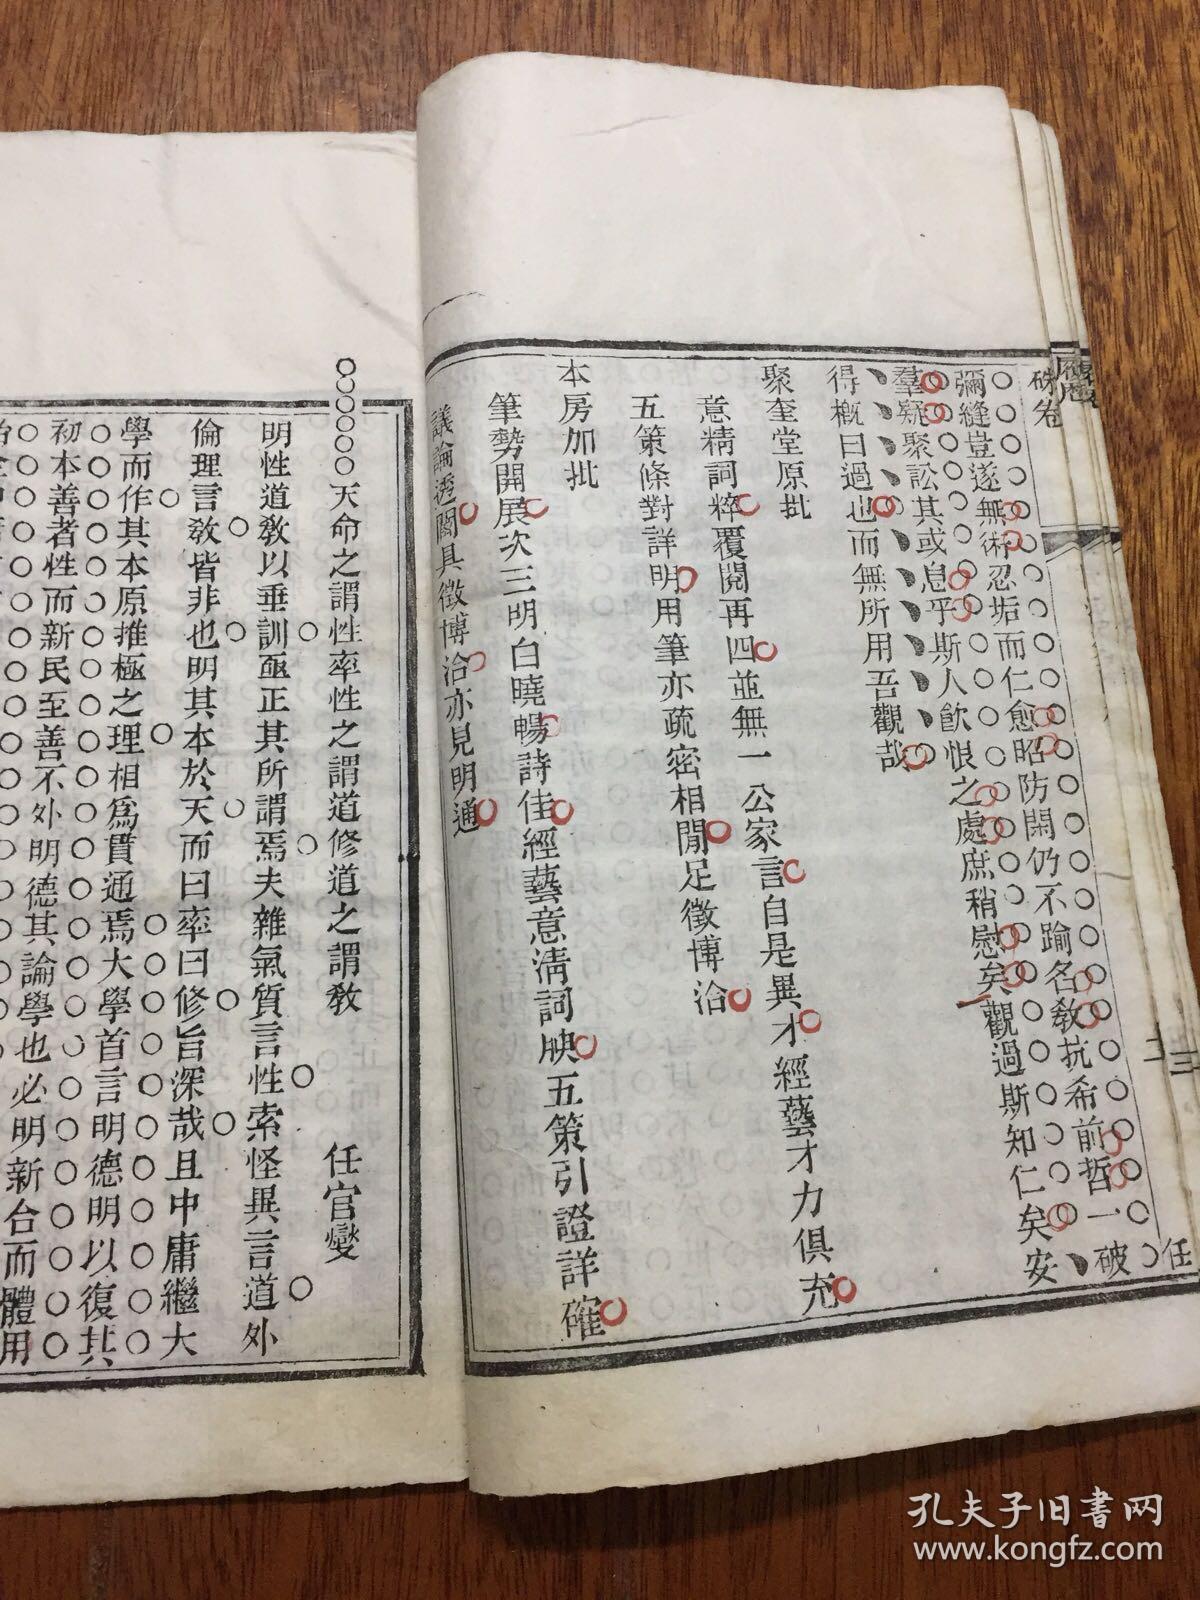 硃卷
任
彌縫豈遂無術忍垢而仁愈昭防閑仍不踰名敎抗希前哲一破
羣疑聚訟其或息乎斯人飮恨之處庶稍慰矣觀過斯知仁矣安
得概曰過也而無所用吾觀哉
聚奎堂原批
意精詞粹覆閱再四並無一公家言自是異才經藝才力俱充
五策條對詳明用筆亦疏密相閒足徵博洽
本房加批
筆勢開展次三明白曉暢詩佳經藝意淸詞腴五策引證詳確
議論透闢具徵博洽亦見明通
天命之謂性率性之謂道修道之謂敎
任官燮
明性道敎以垂訓亟正其所謂焉夫雜氣質言性索怪異言道外
倫理言敎皆非也明其本於天而曰率曰修旨深哉且中庸繼大
學而作其本原推極之理相爲貫通焉大學首言明德明以復其
初本善者性而新民至善不外明德其論學也必明新合而體用